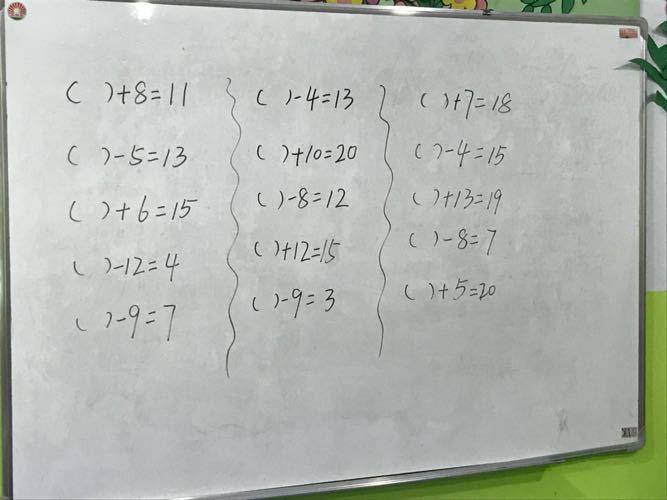 ( )+8=11
( )-5=13
( )+6=15
( )-12=4
( )-9=7
( )-4=13
( )+10=20
( )-8=12
( )+12=15
( )-9=3
( )+7=18
( )-4=15
( )+13=19
( )-8=7
( )+5=20